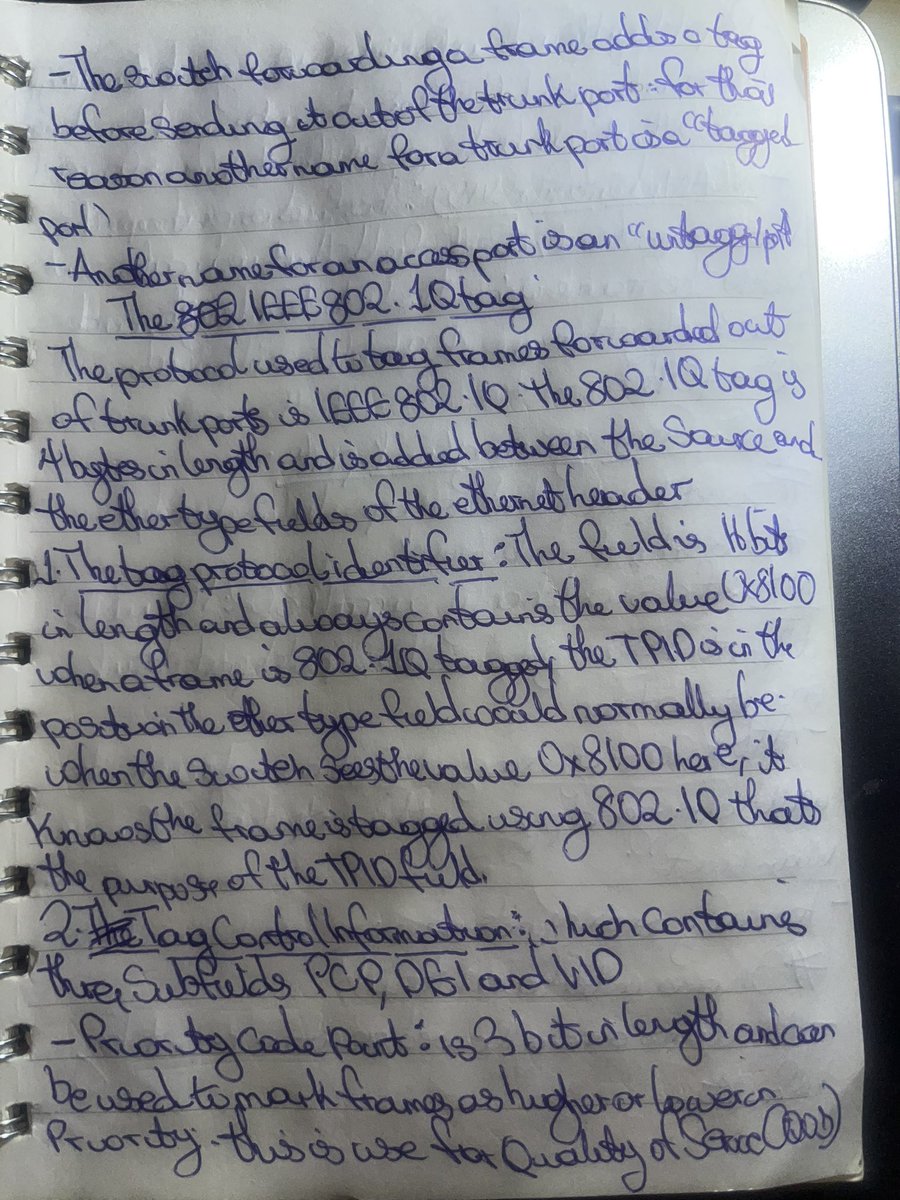 - The switch forwarding a frame adds a tag
before sending it out of the trunk port. for this
reason another name for a trunk port is a "tagged
port)
- Another name for an access port is an "untagg
The 802 IEEE 802.1Q tag
The protocol used to tag frames forwarded out
of trunk ports is IEEE 802.1Q. the 802.1Q tag is
4 bytes in length and is added between the Source and
the ether type fields of the ethernet header
1. The tag protocol identifier: The field is 16 bits
in length and always contains the value 0x8100
when a frame is 802.1Q tagged, the TPID is in the
position the ether type field would normally be.
when the switch sees the value 0x8100 here, it
Knows the frame is tagged using 802.1Q thats
the purpose of the TPID field.
2. The Tag Control Information: which contains
three Subfields PCP, DEI and VID
- Priority Code Point: is 3 bits in length and can
be used to mark frames as higher or lower in
Priority. this is use for Quality of Service